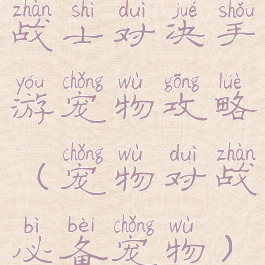 zhàn shì duì jué shǒu
战士对决手
yóu chǒng wù gōng lüè
游宠物攻略
chǒng wù duì zhàn
（宠物对战
bì bèi chǒng wù
必备宠物）